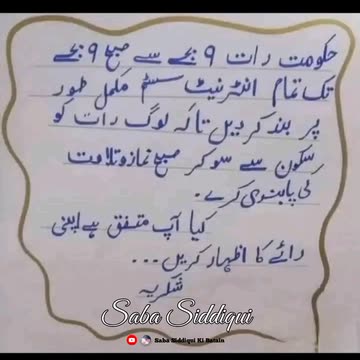 حکومت رات ۹ بجے سے صبح ۹ بجے
تک تمام انٹرنیٹ سسٹم مکمل طور
پر بند کر دیں تاکہ لوگ رات کو
سکون سے سو کر صبح نماز و تلاوت
کی پابندی کرے۔
کیا آپ متفق ہے اپنی
رائے کا اظہار کریں...
شکریہ
Saba Siddiqui
Saba Siddiqui Ki Batain